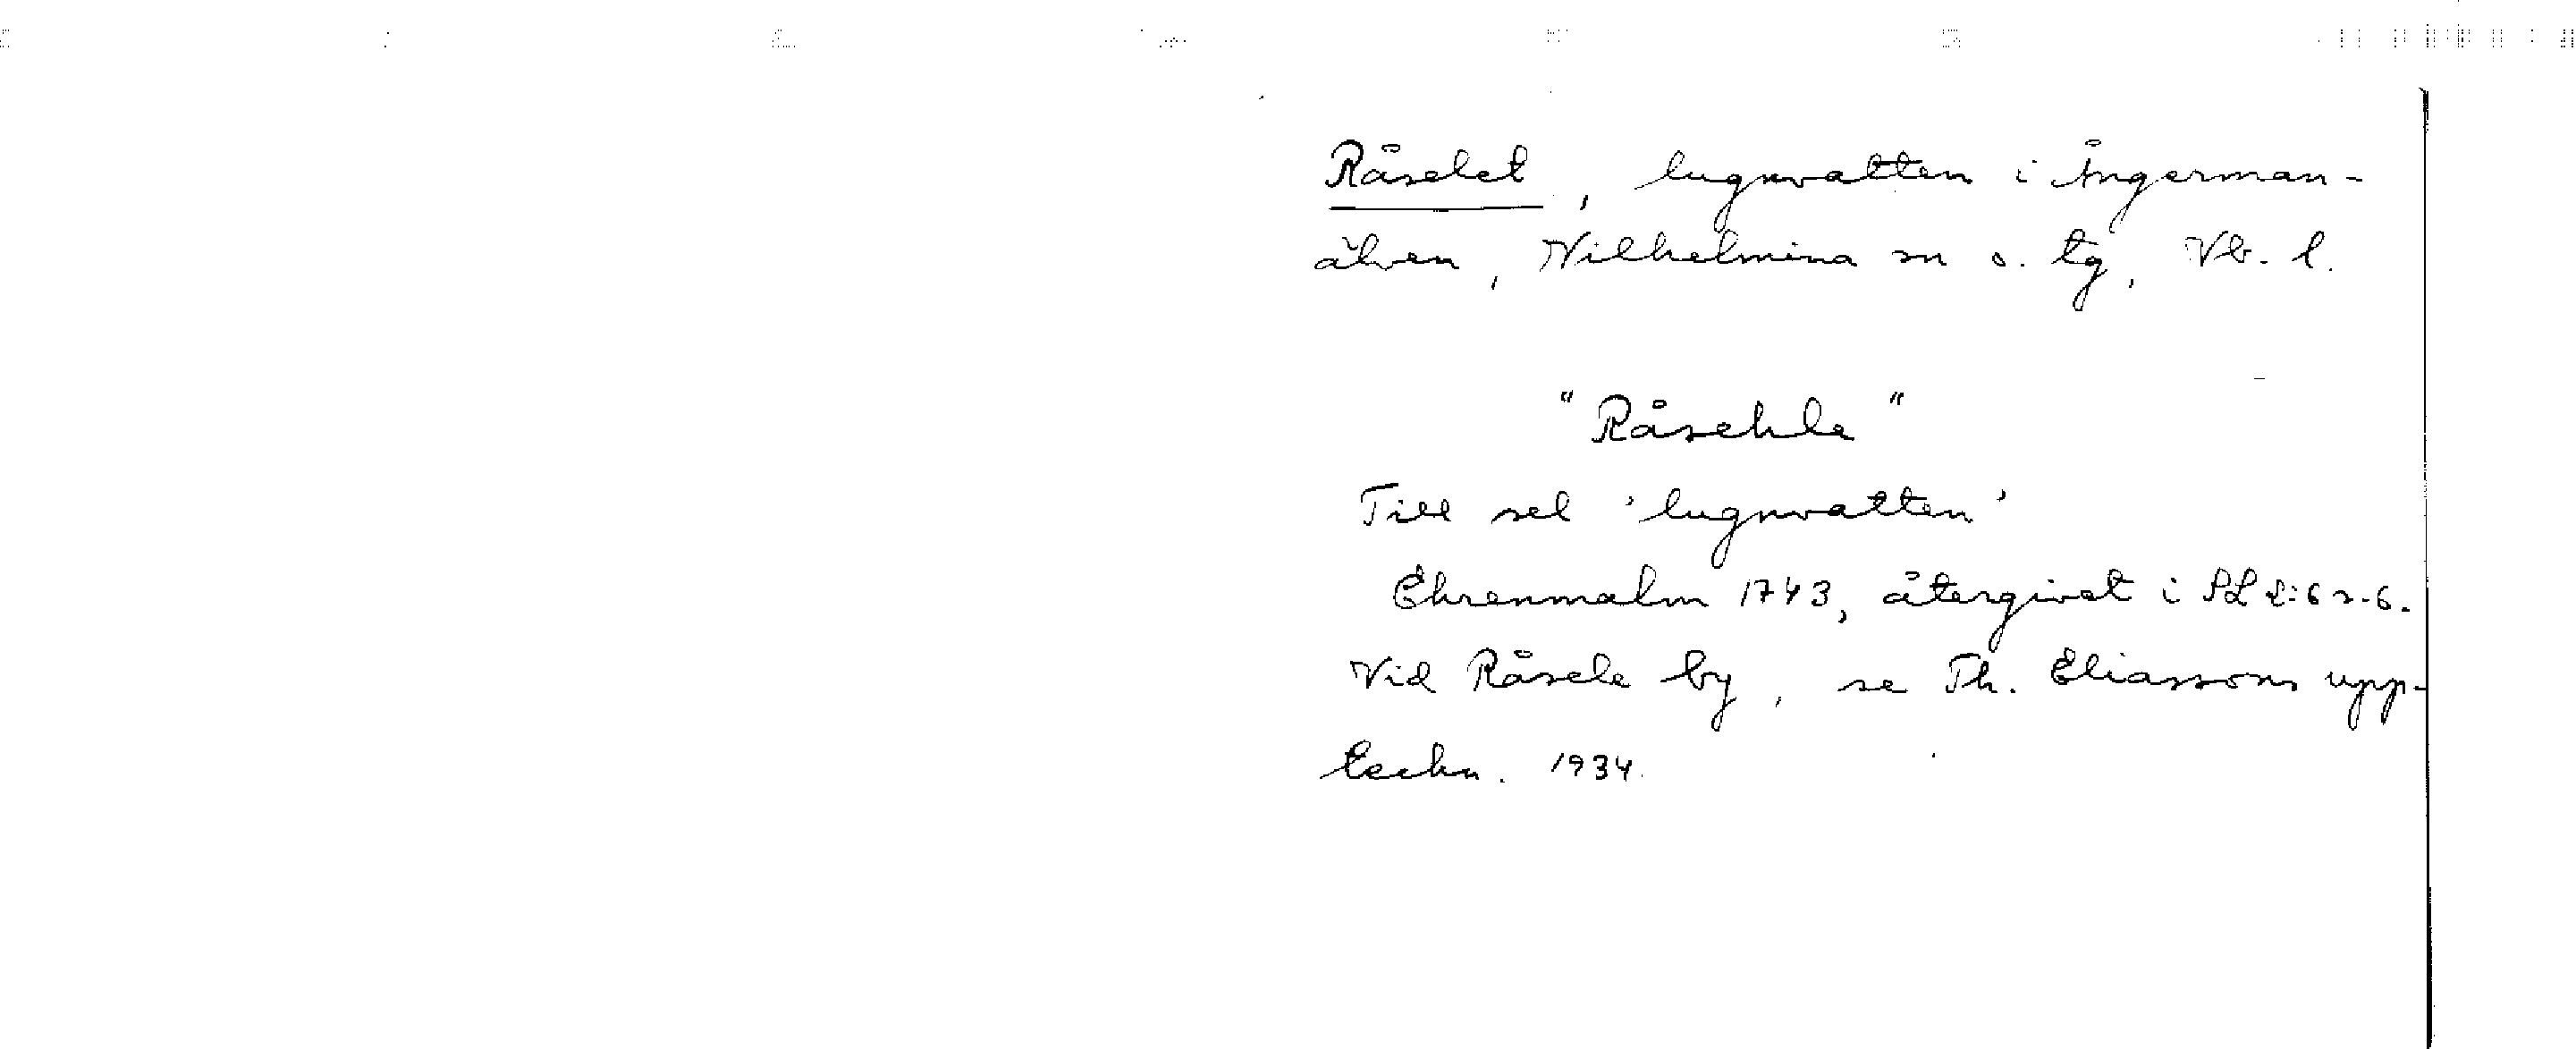 Råselet, lugnvatten i Ångerman-
älven, Vilhelmina sn o. tg, Vb. l.
"Råsehle"
Till sel 'lugnvatten'
Ehrenmalm 1743, återgivet i
Vid Råsele by, se Th. Eliassons upp-
teckn. 1934.